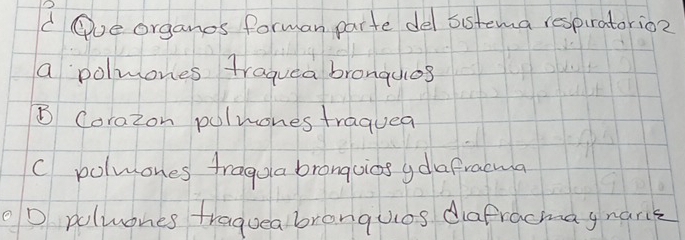 ¿ Que organos forman parte del sistema respiratorio?
a polmones traquea bronquios
B Corazon pulmones traquea
C polmones traquia bronquios y diafracma
D pulmones traquea bronquios diafracma y nariz